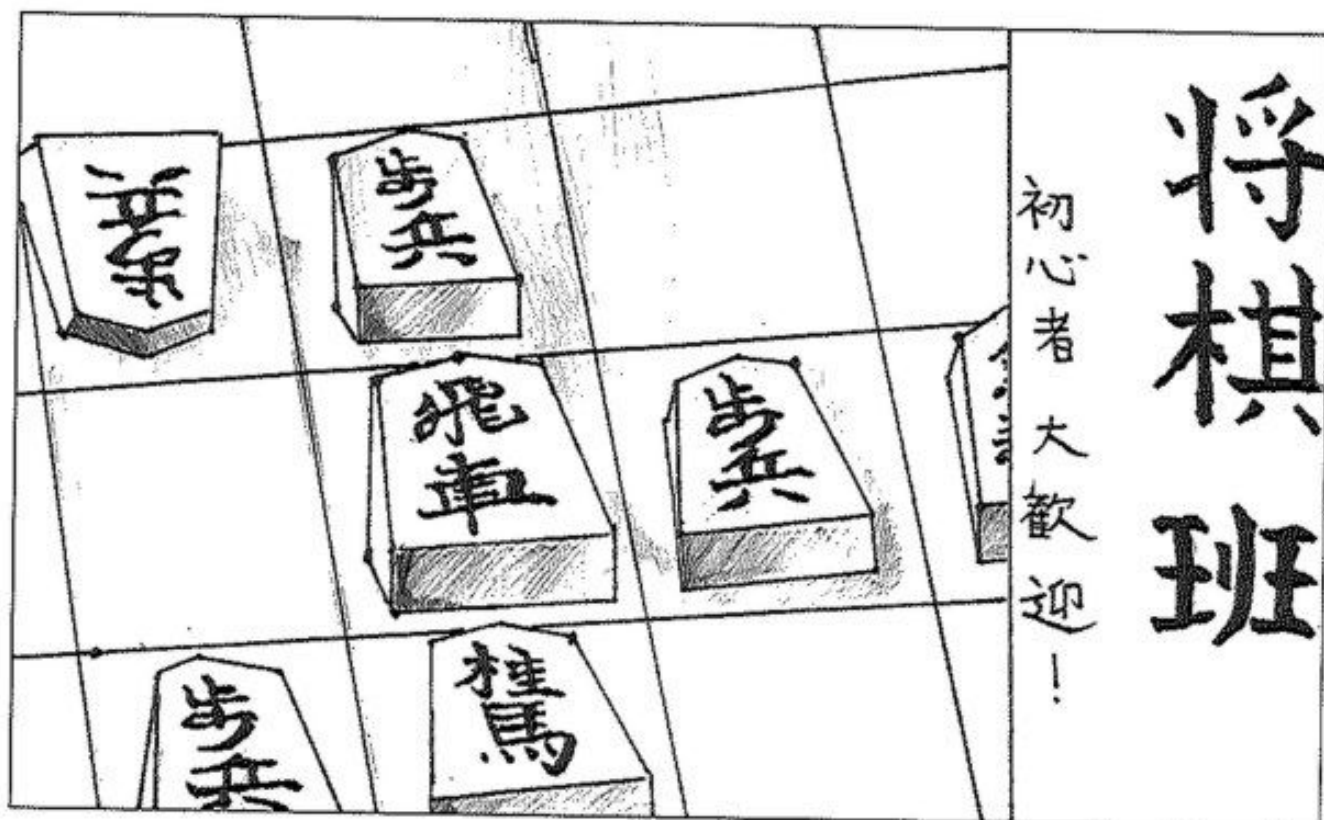 将棋班
初心者大歓迎!
歩兵
歩兵
飛車
歩兵
歩兵
桂馬